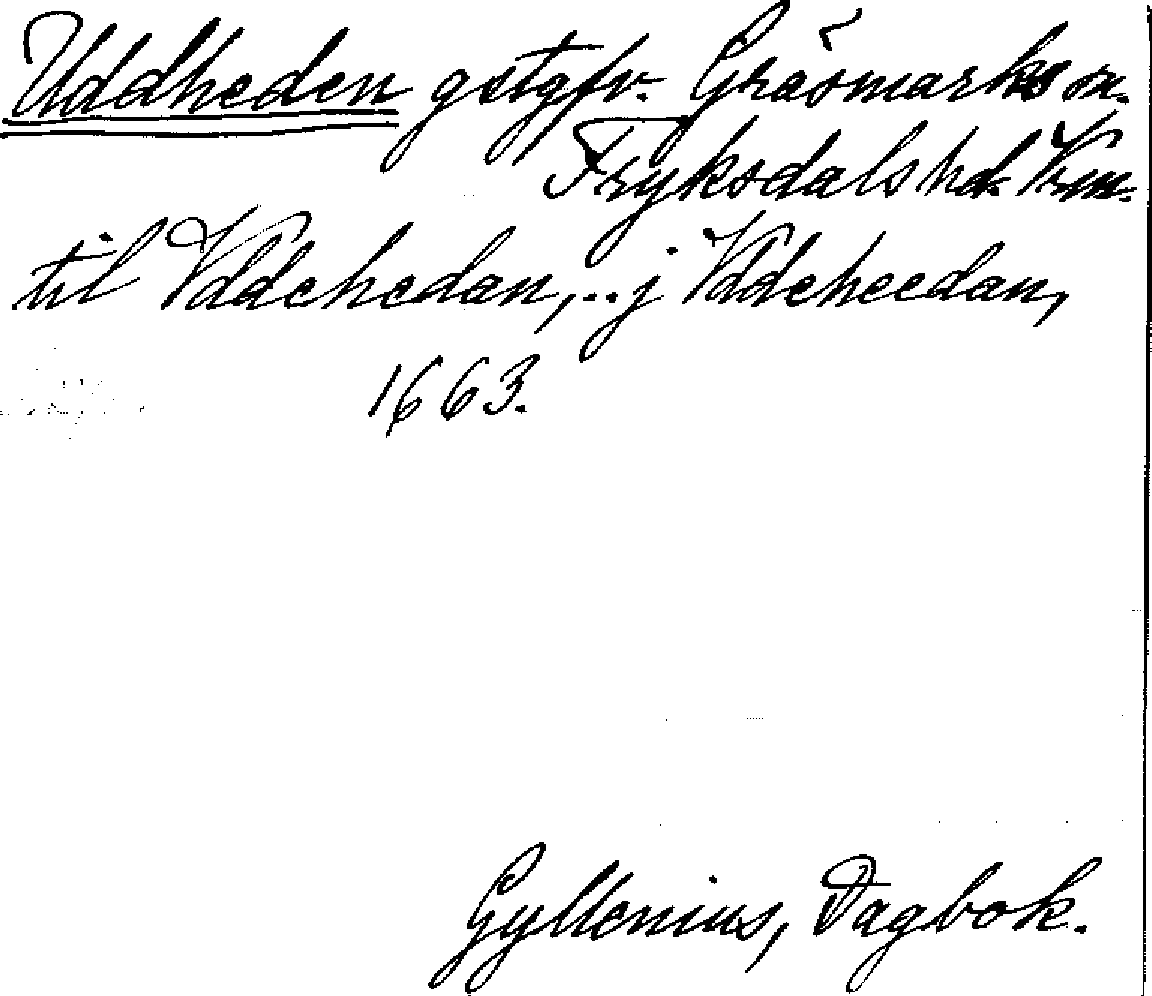 Uddheden gstgfv. Gräsmarks sn.
Fryksdals hd. Vrm.
til Vddehedan, .. j Vddeheedan,
1663.
Gyllenius, Dagbok.